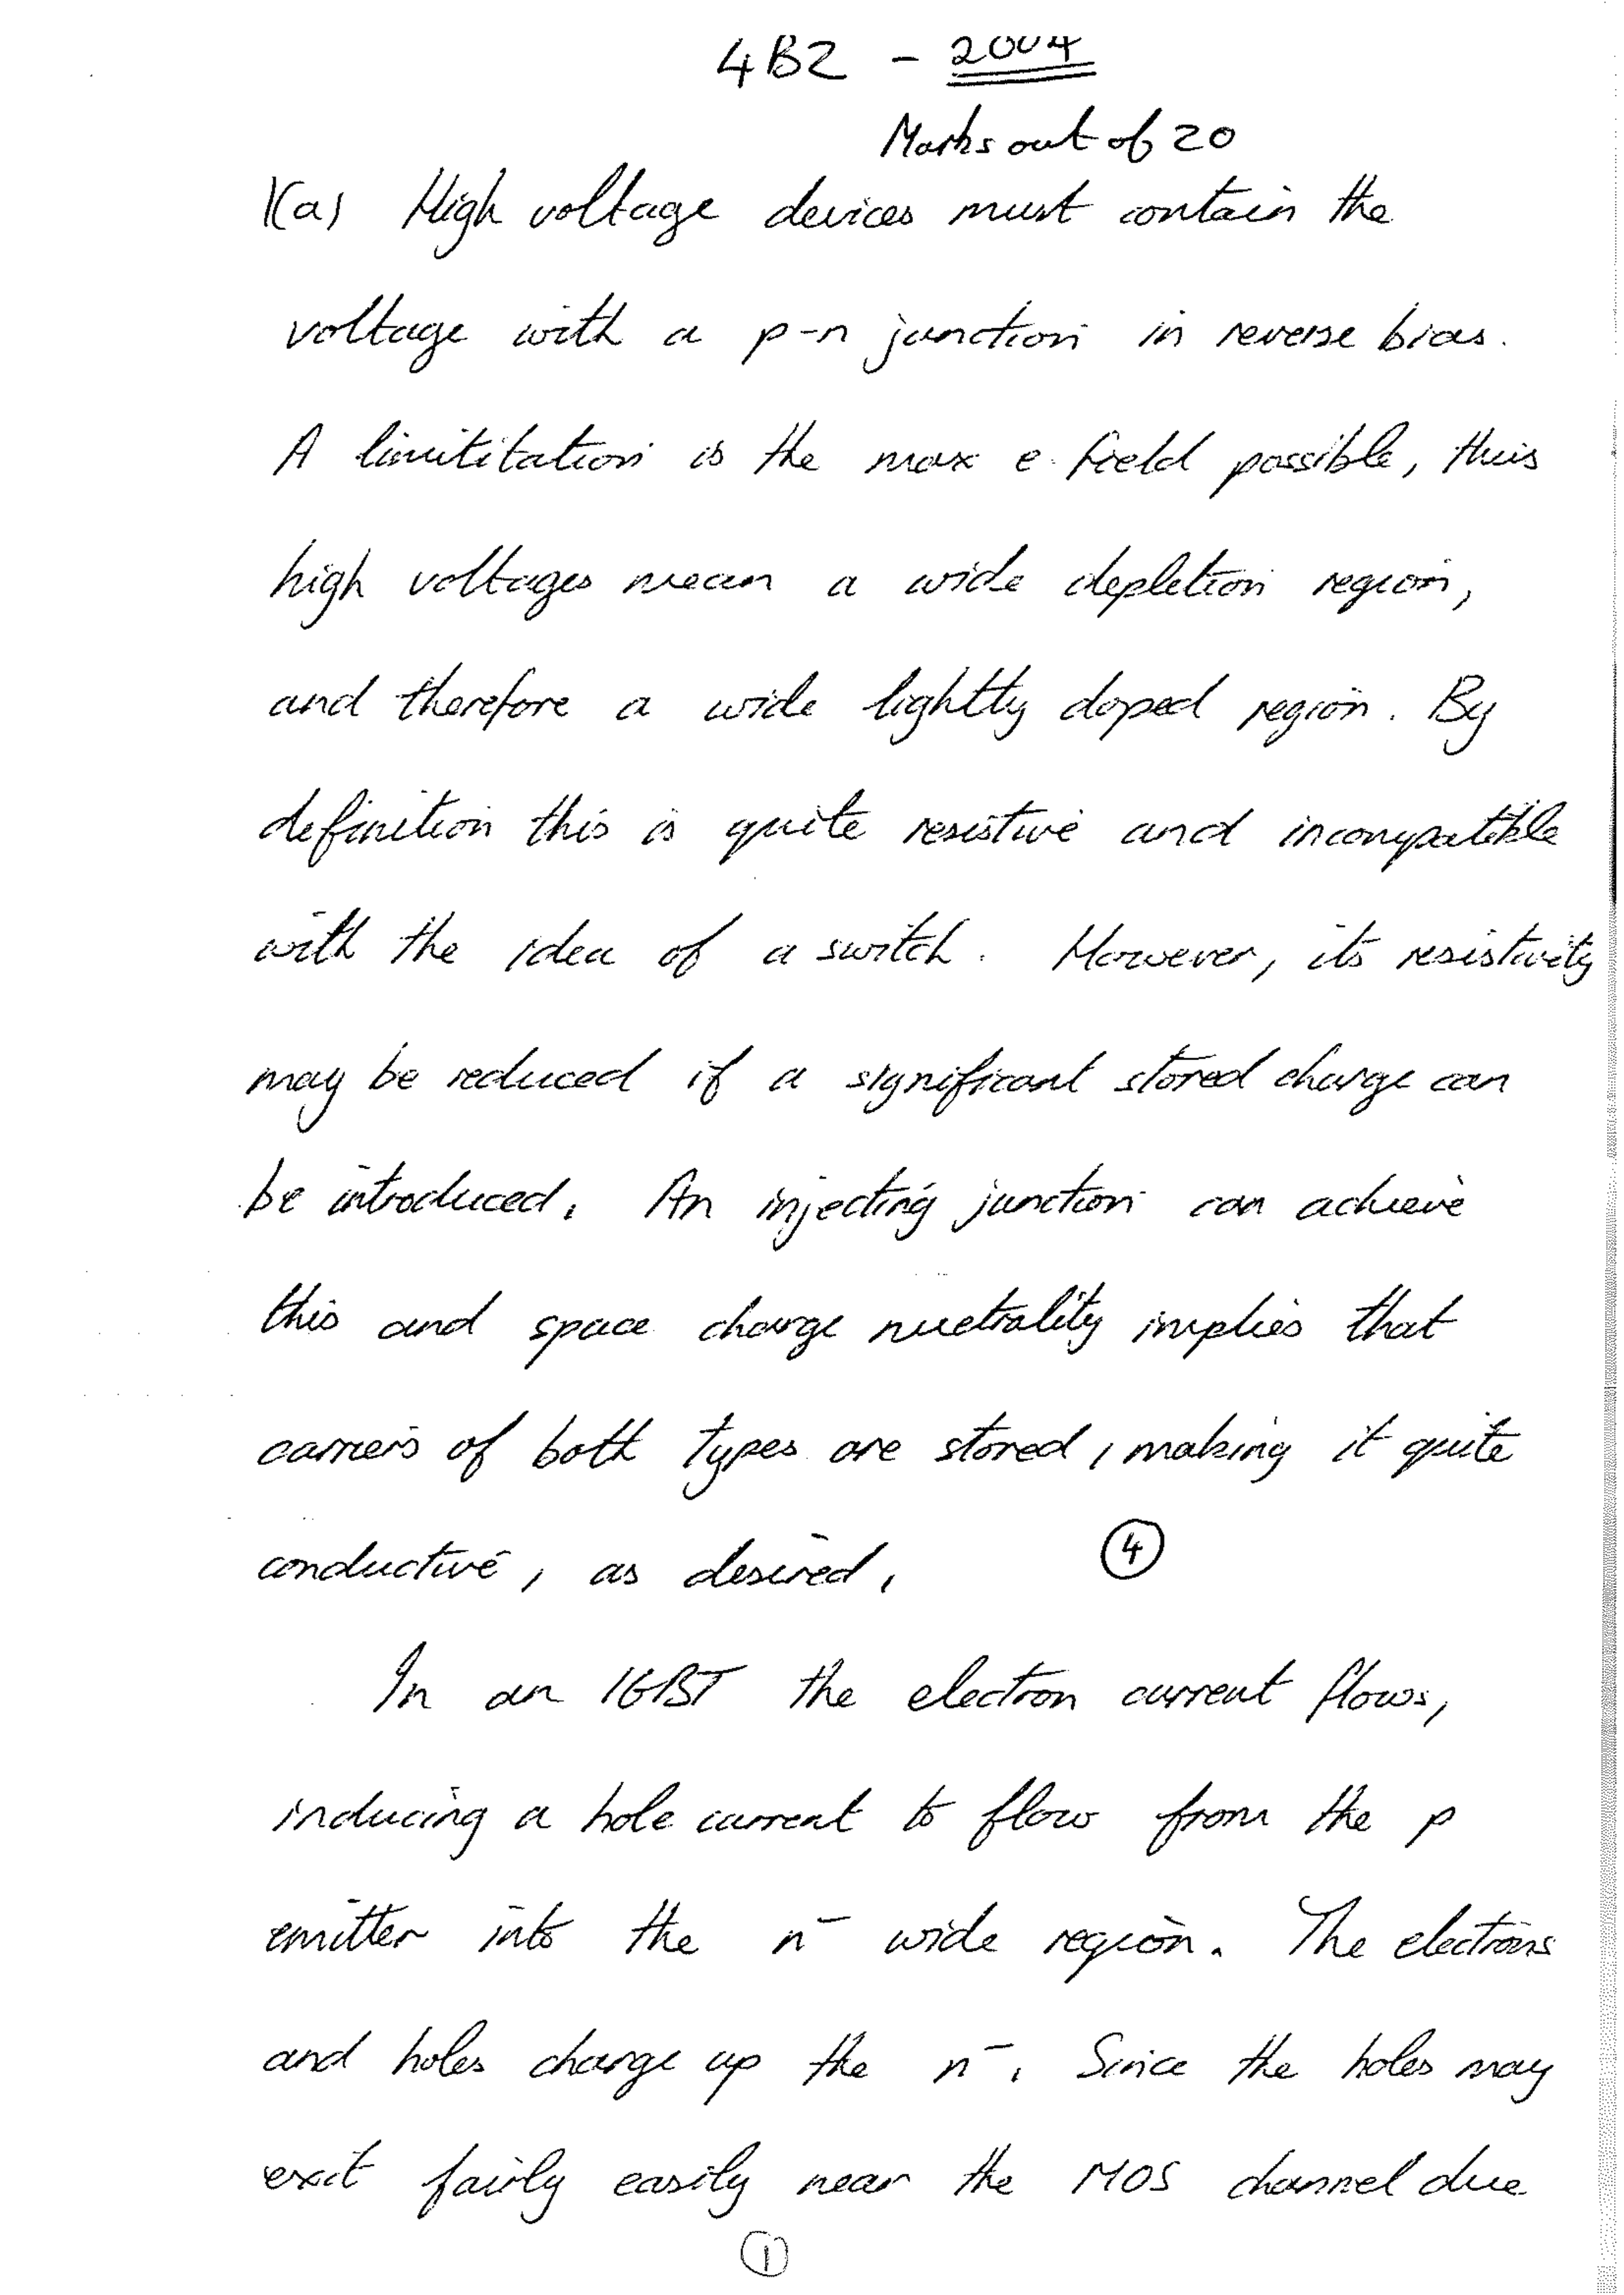 4B2 - 2004
Marks out of 20
1(a) High voltage devices must contain the
voltage with a p-n junction in reverse bias.
A limititation is the max e-field possible, thus
high voltages mean a wide depletion region,
and therefore a wide lightly doped region. By
definition this is quite resistive and incompatible
with the idea of a switch. However, its resistivity
may be reduced if a significant stored charge can
be introduced. An injecting junction can achieve
this and space charge nuetrality implies that
carriers of both types are stored, making it quite
conductive, as desired. ④
In an IGBT the electron current flows,
inducing a hole current to flow from the p
emitter into the n⁻ wide region. The electrons
and holes charge up the n⁻. Since the holes may
exit fairly easily near the MOS channel due
①